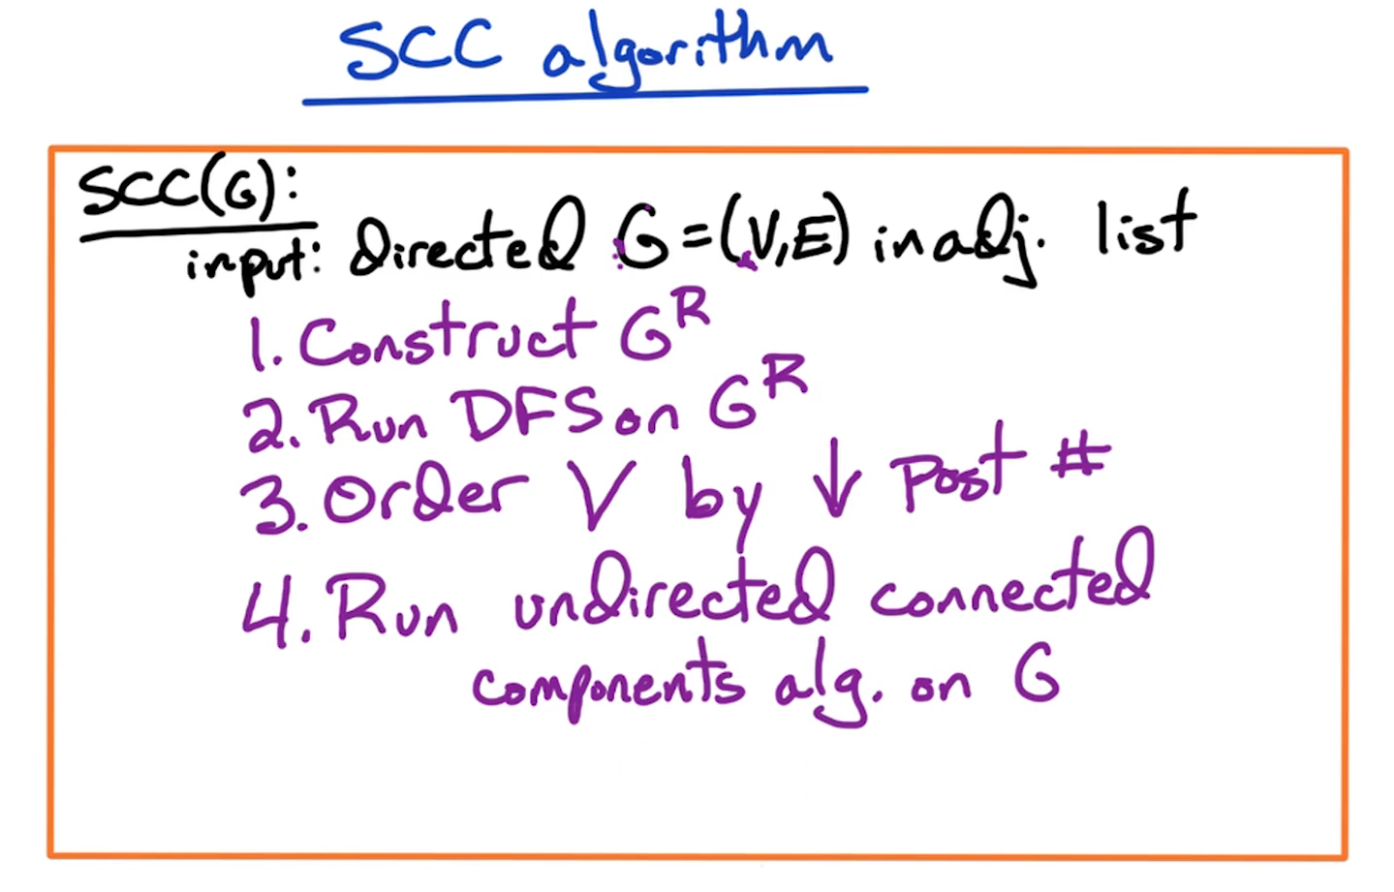 SCC algorithm
SCC(G):
input: directed G=(V,E) in adj. list
1. Construct G^R
2. Run DFS on G^R
3. Order V by ↓ post #
4. Run undirected connected
components alg. on G